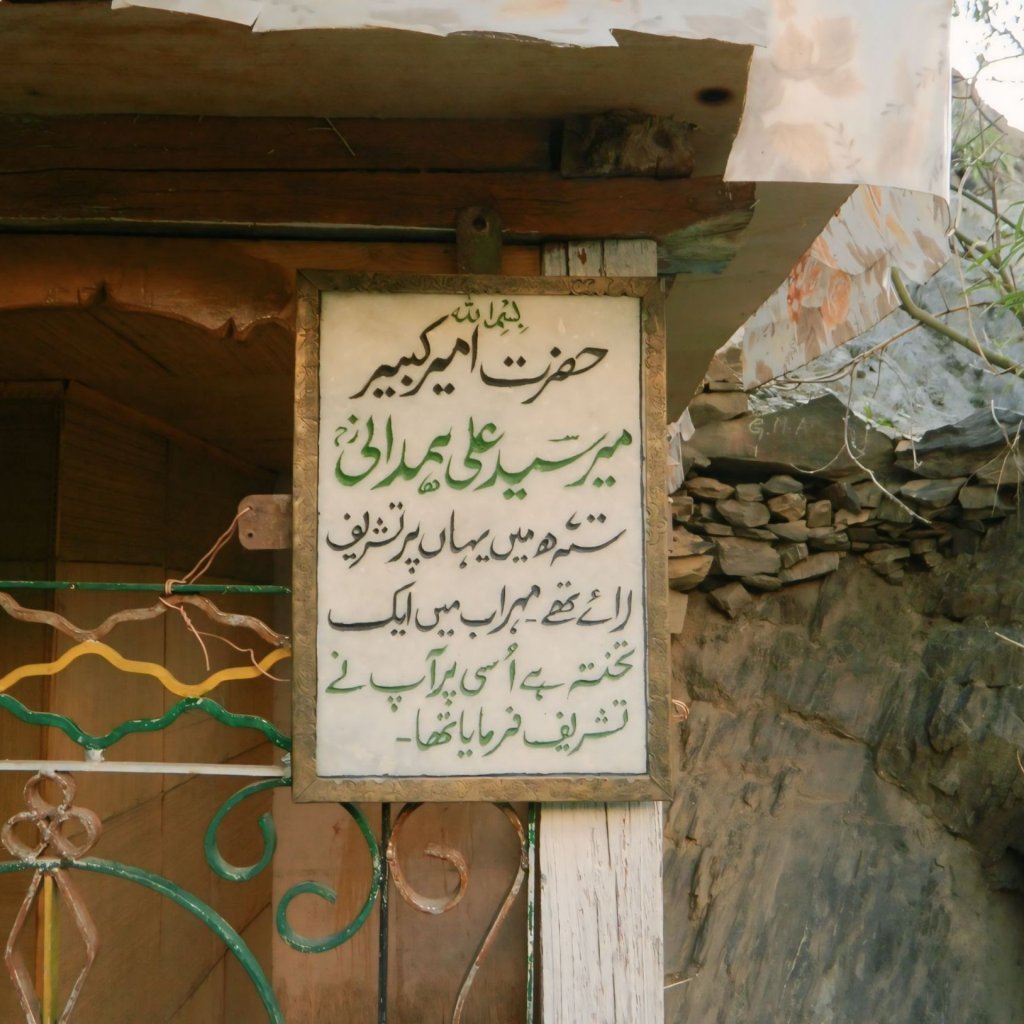 بسم اللہ
حضرت امیر کبیر
میر سید علی ہمدانیؒ
میں یہاں پر تشریف
لائے تھے۔ مہراب میں ایک
تختہ ہے اُسی پر آپ نے
تشریف فرمایا تھا۔